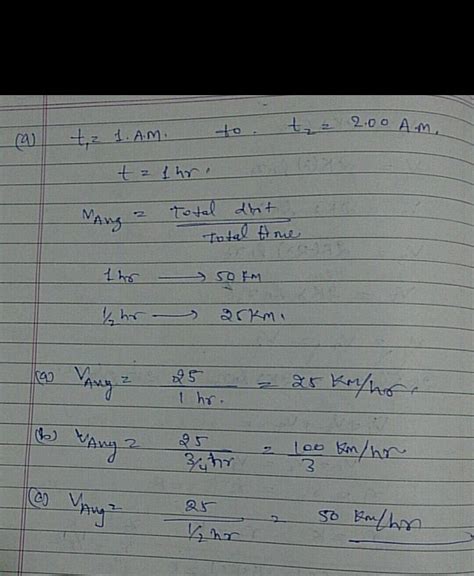 (a) t₁ = 1. A.M. to. t₂ = 2.00 A.M.
t = 1 hr.
VAvg = Total dist / Total time
1 hr → 50 KM
1/2 hr → 25 KM.
(a) VAvg = 25 / 1 hr. = 25 Km/hr.
(b) VAvg = 25 / 3/4 hr = 100 / 3 Km/hr
(c) VAvg = 25 / 1/2 hr = 50 Km/hr